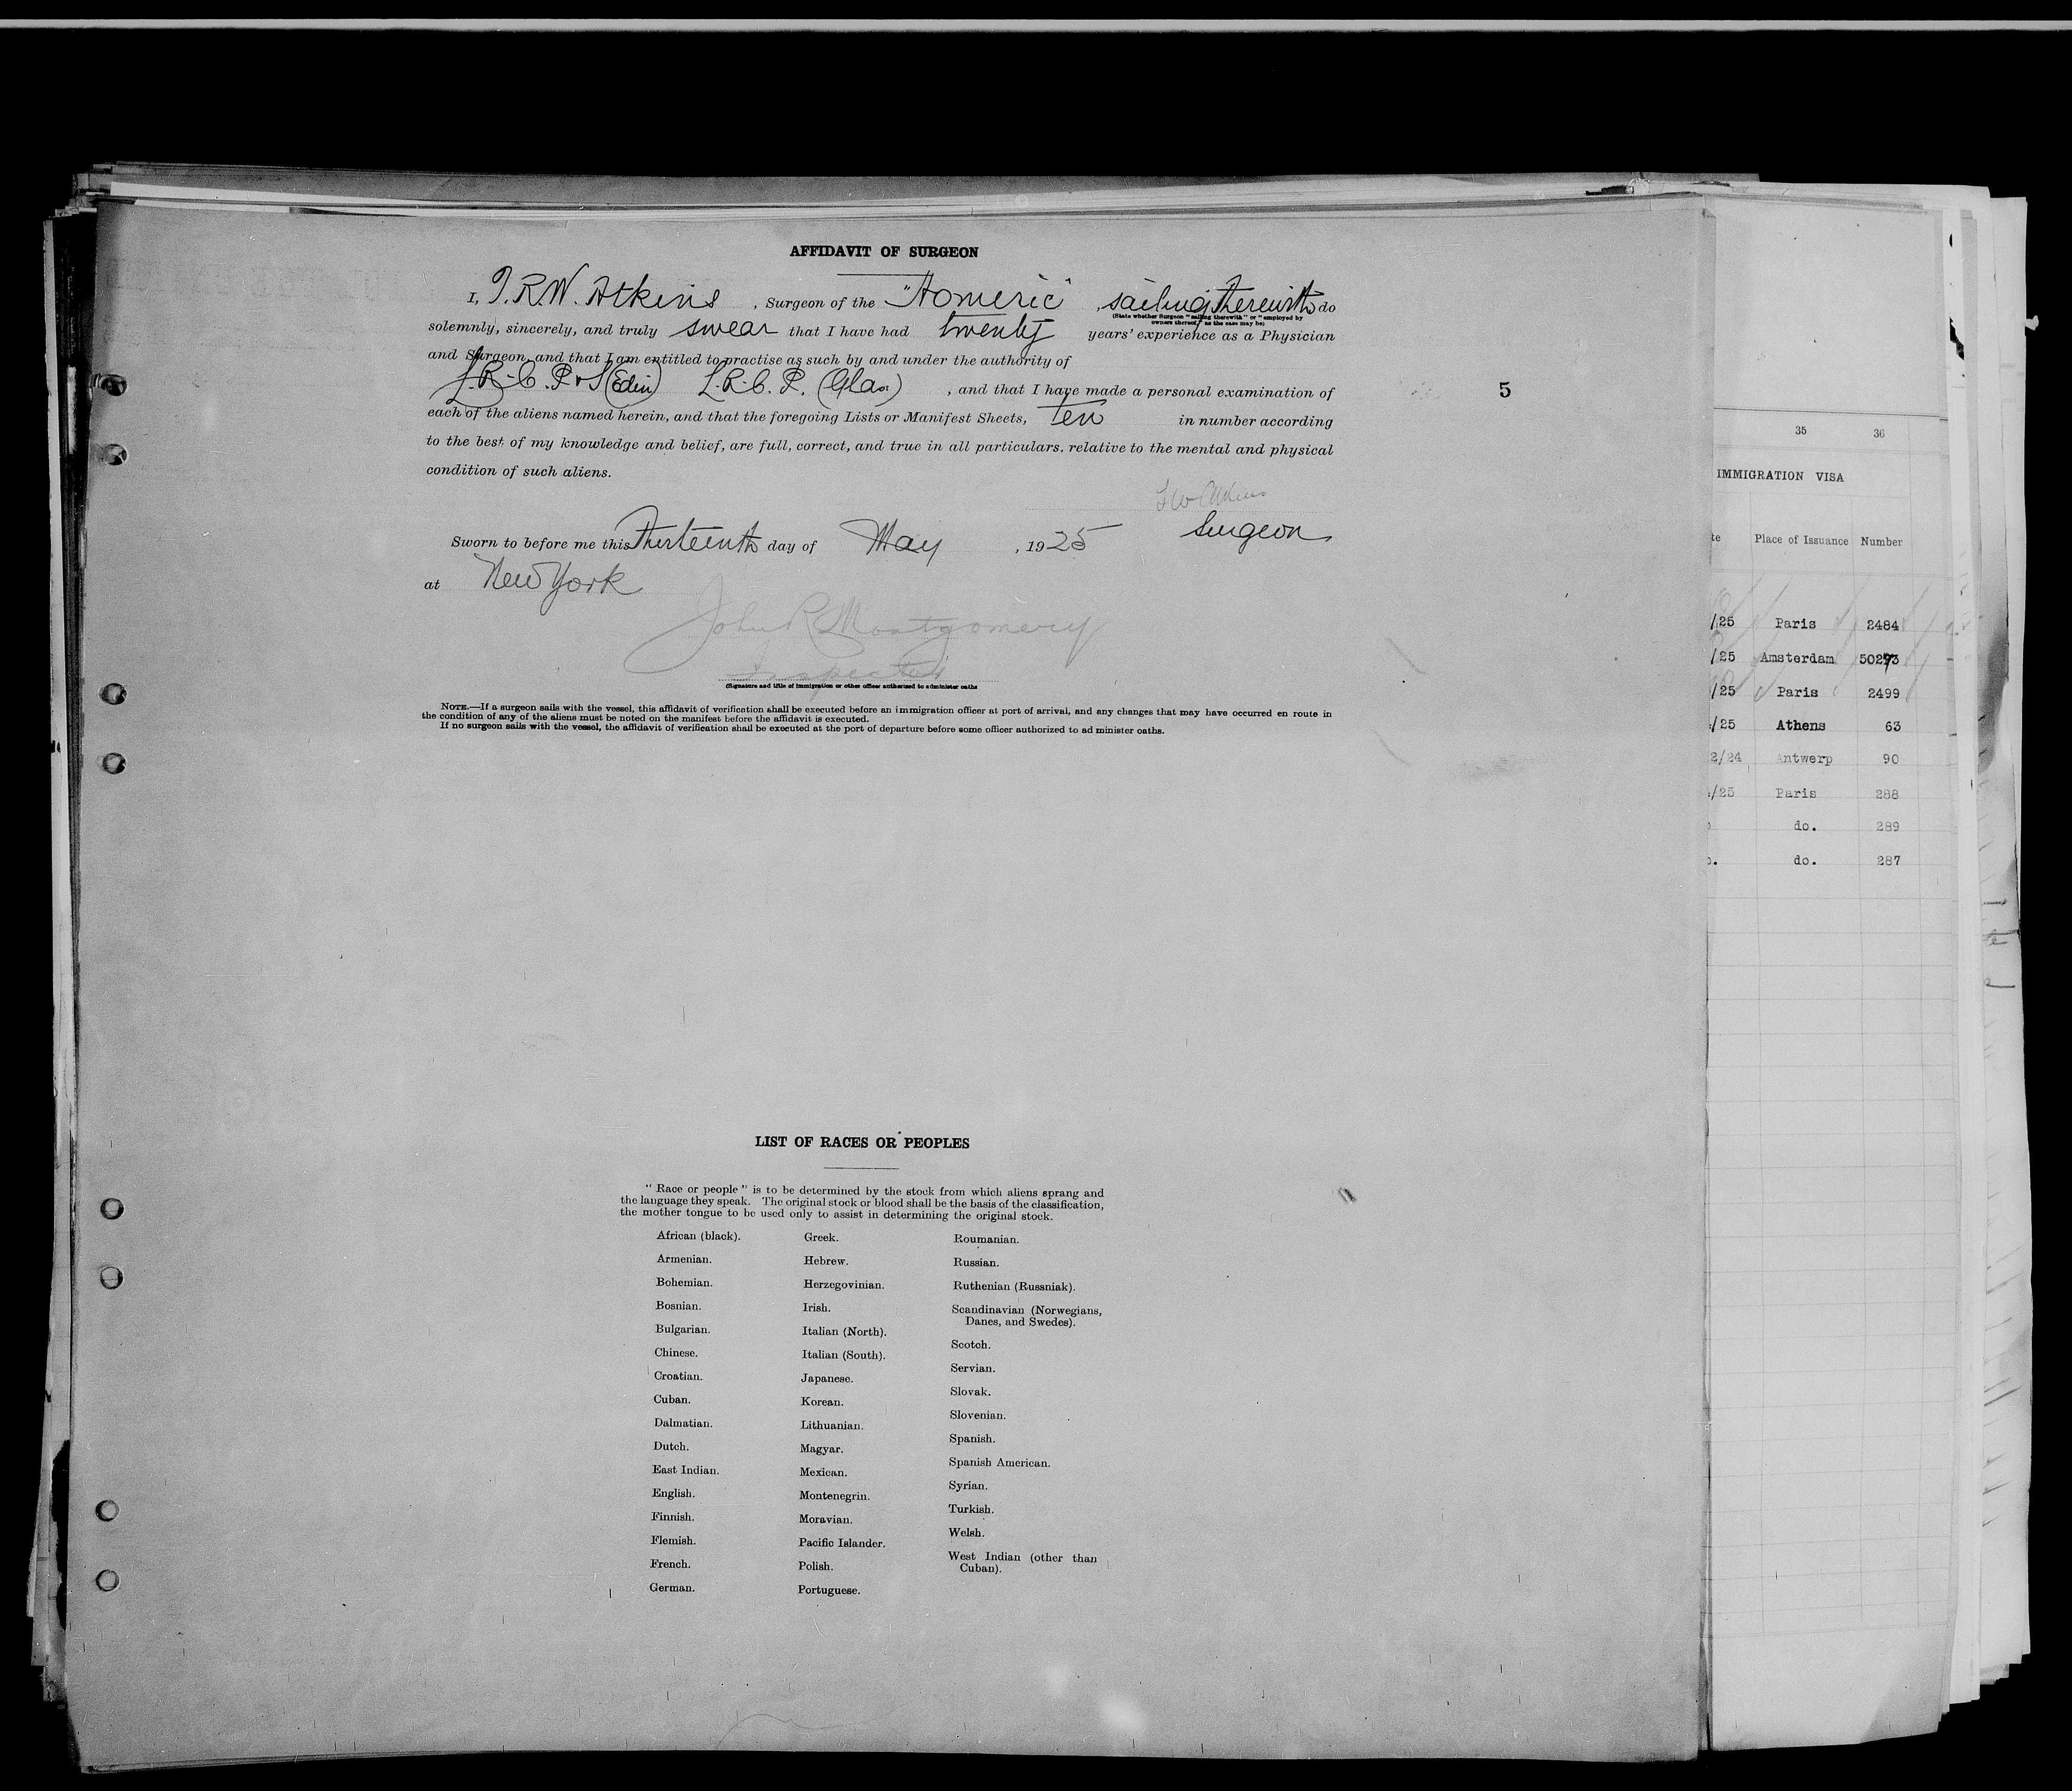 AFFIDAVIT OF SURGEON
I, J.R.W. Atkins , Surgeon of the "Homeric" , sailing therewith do
(State whether Surgeon "sailing therewith" or "employed by
owners thereof," as the case may be)
solemnly, sincerely, and truly swear that I have had twenty years' experience as a Physician
and Surgeon, and that I am entitled to practise as such by and under the authority of
L.R.C.P.&S (Edin) L.R.C.P. (Glas) , and that I have made a personal examination of
5
each of the aliens named herein, and that the foregoing Lists or Manifest Sheets, ten in number according
to the best of my knowledge and belief, are full, correct, and true in all particulars, relative to the mental and physical
condition of such aliens.
Surgeon
Sworn to before me this Thirteenth day of May , 1925
at New York
John R Montgomery
Inspector
(Signature and title of immigration or other officer authorized to administer oaths
NOTE.—If a surgeon sails with the vessel, this affidavit of verification shall be executed before an immigration officer at port of arrival, and any changes that may have occurred en route in
the condition of any of the aliens must be noted on the manifest before the affidavit is executed.
If no surgeon sails with the vessel, the affidavit of verification shall be executed at the port of departure before some officer authorized to ad minister oaths.
LIST OF RACES OR PEOPLES
"Race or people" is to be determined by the stock from which aliens sprang and
the language they speak. The original stock or blood shall be the basis of the classification,
the mother tongue to be used only to assist in determining the original stock.
African (black).
Armenian.
Bohemian.
Bosnian.
Bulgarian.
Chinese.
Croatian.
Cuban.
Dalmatian.
Dutch.
East Indian.
English.
Finnish.
Flemish.
French.
German.
Greek.
Hebrew.
Herzegovinian.
Irish.
Italian (North).
Italian (South).
Japanese.
Korean.
Lithuanian.
Magyar.
Mexican.
Montenegrin.
Moravian.
Pacific Islander.
Polish.
Portuguese.
Roumanian.
Russian.
Ruthenian (Russniak).
Scandinavian (Norwegians,
Danes, and Swedes).
Scotch.
Servian.
Slovak.
Slovenian.
Spanish.
Spanish American.
Syrian.
Turkish.
Welsh.
West Indian (other than
Cuban).
35 36
IMMIGRATION VISA
te Place of Issuance Number
/25 Paris 2484
/25 Amsterdam
/25 Paris 2499
/25 Athens 63
2/24 Antwerp 90
/25 Paris 288
do. 289
do. 287